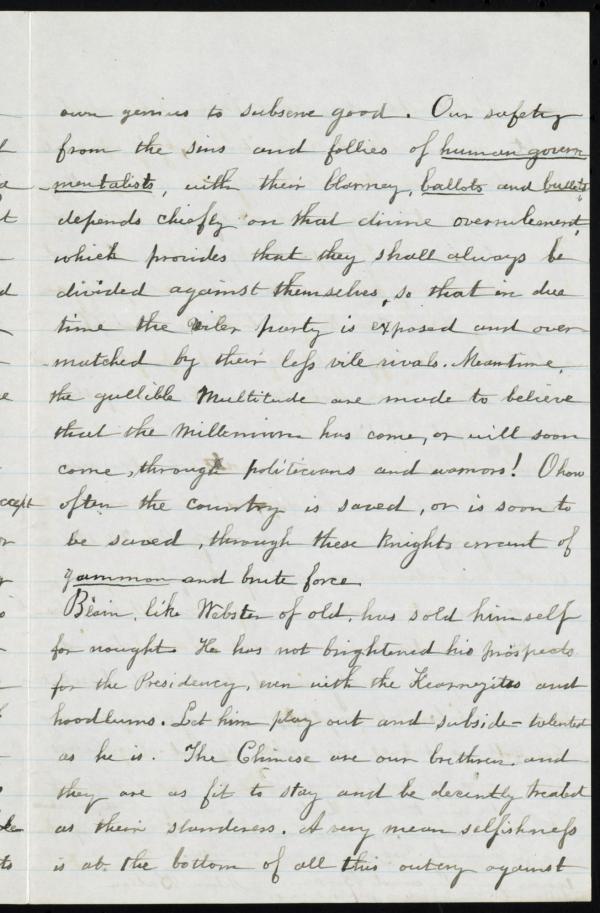 own genius to subserve good. Our safety
from the sins and follies of human govern
mentalists, with their blarney, ballots and bullets,
depends chiefly on that divine overrulement,
which provides that they shall always be
divided against themselves, so that in due
time the viler party is exposed and over
matched by their less vile rivals. Meantime,
the gullible multitude are made to believe
that the Millenium has come, or will soon
come, through politicians and warriors! O how
often the country is saved, or is soon to
be saved, through these Knights errant of
gammon and brute force.
Blain, like Webster of old, has sold himself
for nought. He has not brightened his prospects
for the Presidency, even with the Kearneyites and
hoodlums. Let him play out and subside - talented
as he is. The Chinese are our brethren, and
they are as fit to stay and be decently treated
as their slanderers. A very mean selfishness
is at the bottom of all this outcry against